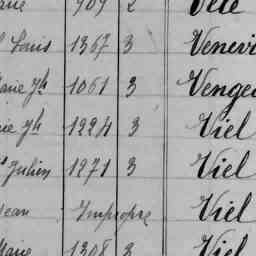 arie 909 2 Vele
Louis 1367 3 Venevi
Marie Jh 1061 3 Vengea
rie Jh 1224 3 Viel
Julien 1271 3 Viel
Jean Impropre Viel
Marie 1308 3 Viel